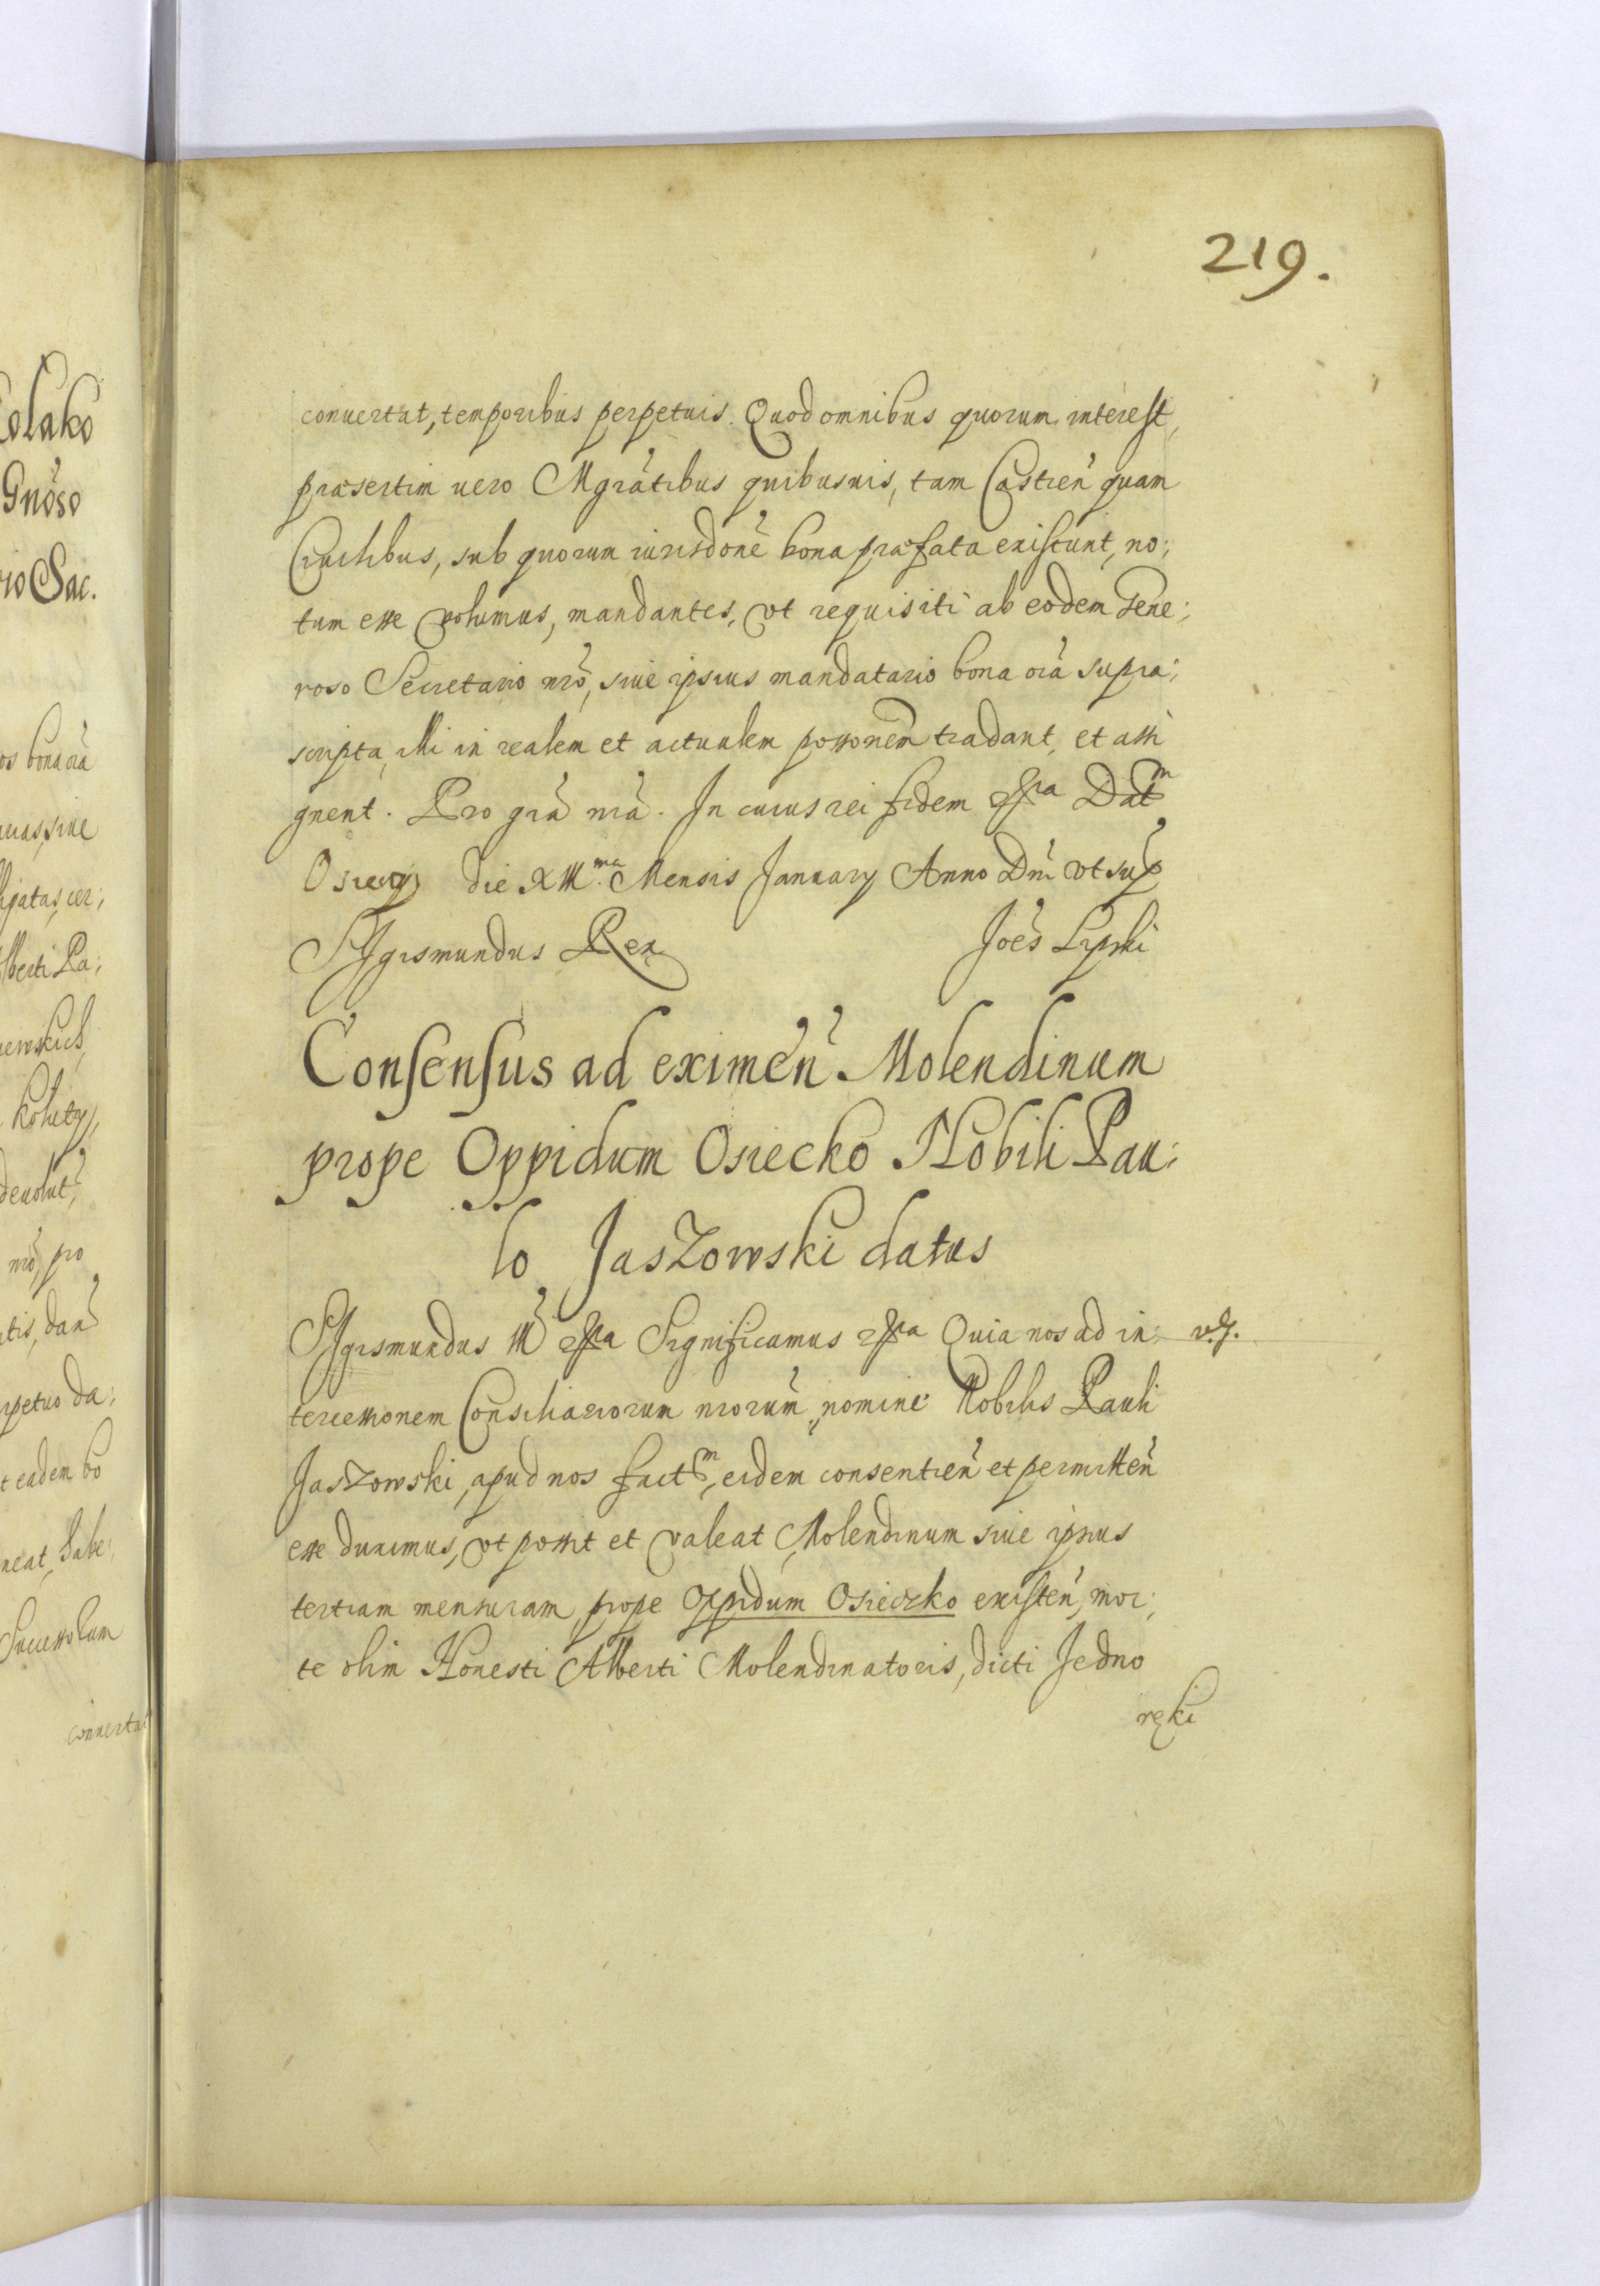 219.
conuertat, temporibus perpetuis. Quod omnibus quorum interest,
præsertim uero Mgrãtibus quibusuis, tam Castreñ quam
Ciuilibus, sub quorum iurisdonẽ bona præfata existunt, no:
tum esse volumus, mandantes, vt requisiti ab eodem Gene:
roso Secretario nrõ, siue ipsius mandatario bona oiã supra:
scripta, illi in realem et actualem possonem̃ tradant, et assi
gnent. Pro grã nrã. In cuius rei fidem etc̃a Datm
die XIIIma. Mensis January Anno Dni vt sup
Sigismundus Rex Joẽs Lipski
Consensus ad eximeñ Molendinum
prope Oppidum Osiecko Nobili Pau:
lo Jaszowski datus
Sigismundus III etc̃a Significamus etc̃a Quia nos ad in: v.g.
tercessionem Consiliariorum nrorum̃, nomine Nobilis Pauli
Jaszowski, apud nos factm, eidem consentieñ et permitteñ
esse duximus, vt possit et valeat Molendinum siue ipsius
tertiam mensuram, prope Oppidum Osieczko existeñ, mor:
te olim Honesti Alberti Molendinatoris, dicti Jedno
ręki
olako
Gnõso
rio Sac.
os bona oiã
uas, siue
ligatas, cer:
lberti Pa:
iewskich
Kolety,
deuolut,
nrõ, pro
tis, dañ
rpetuo da:
t eadem bo
neat, habe:
Successorum
conuertat